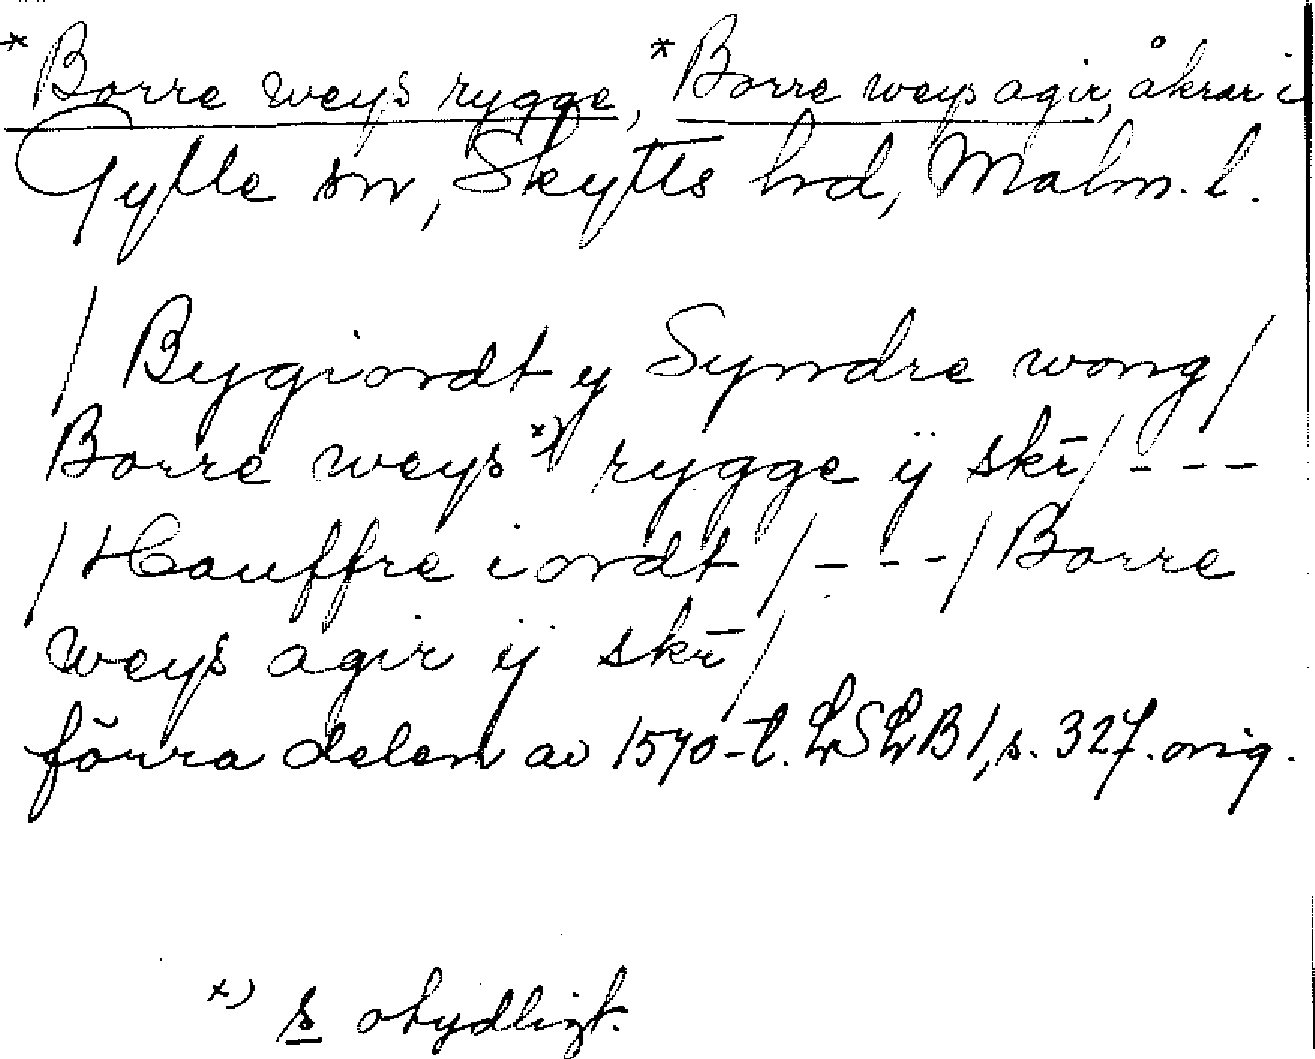 *Borre weys rygge, *Borre weys agir, åkrar i
Gylle sn, Skytts hrd, Malm. l.
/ Bygiordt y Syndre wong /
Borre weys x) rygge ij skr̄ / - - -
/ Hauffre iordt / - - - / Borre
weys agir ij skr̄ /
förra delen av 1570-t. LSLB 1, s. 327. orig.
x) s otydligt.